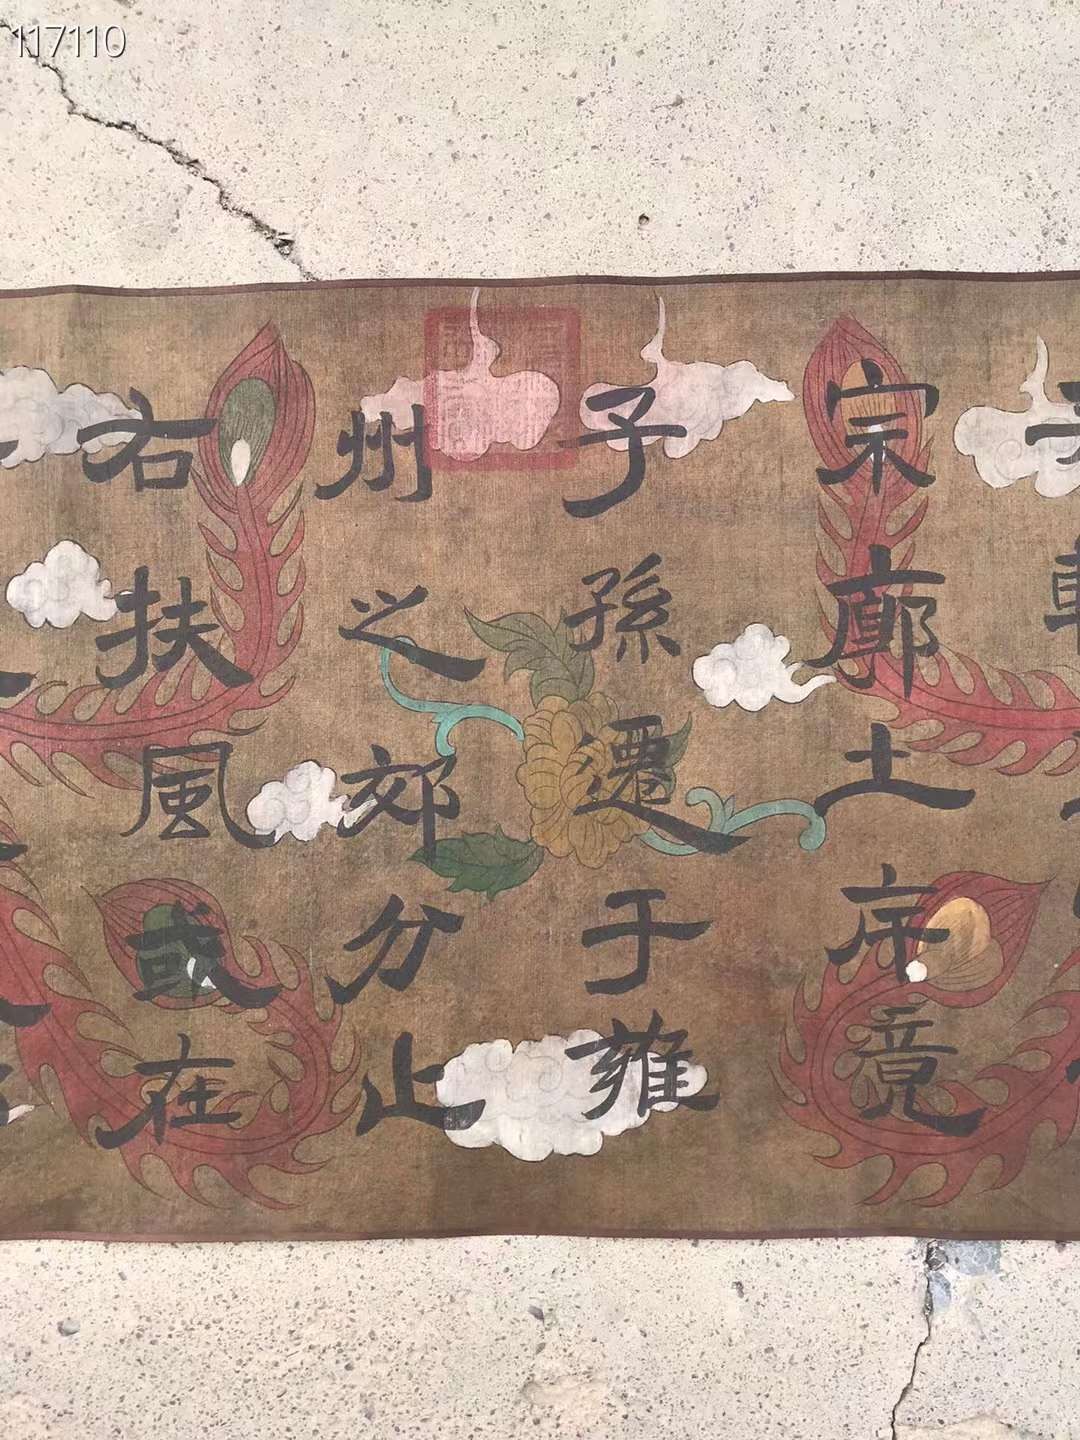 117110
宗廓土斥竟
子孫遷于雍
州之郊分止
右扶風或在